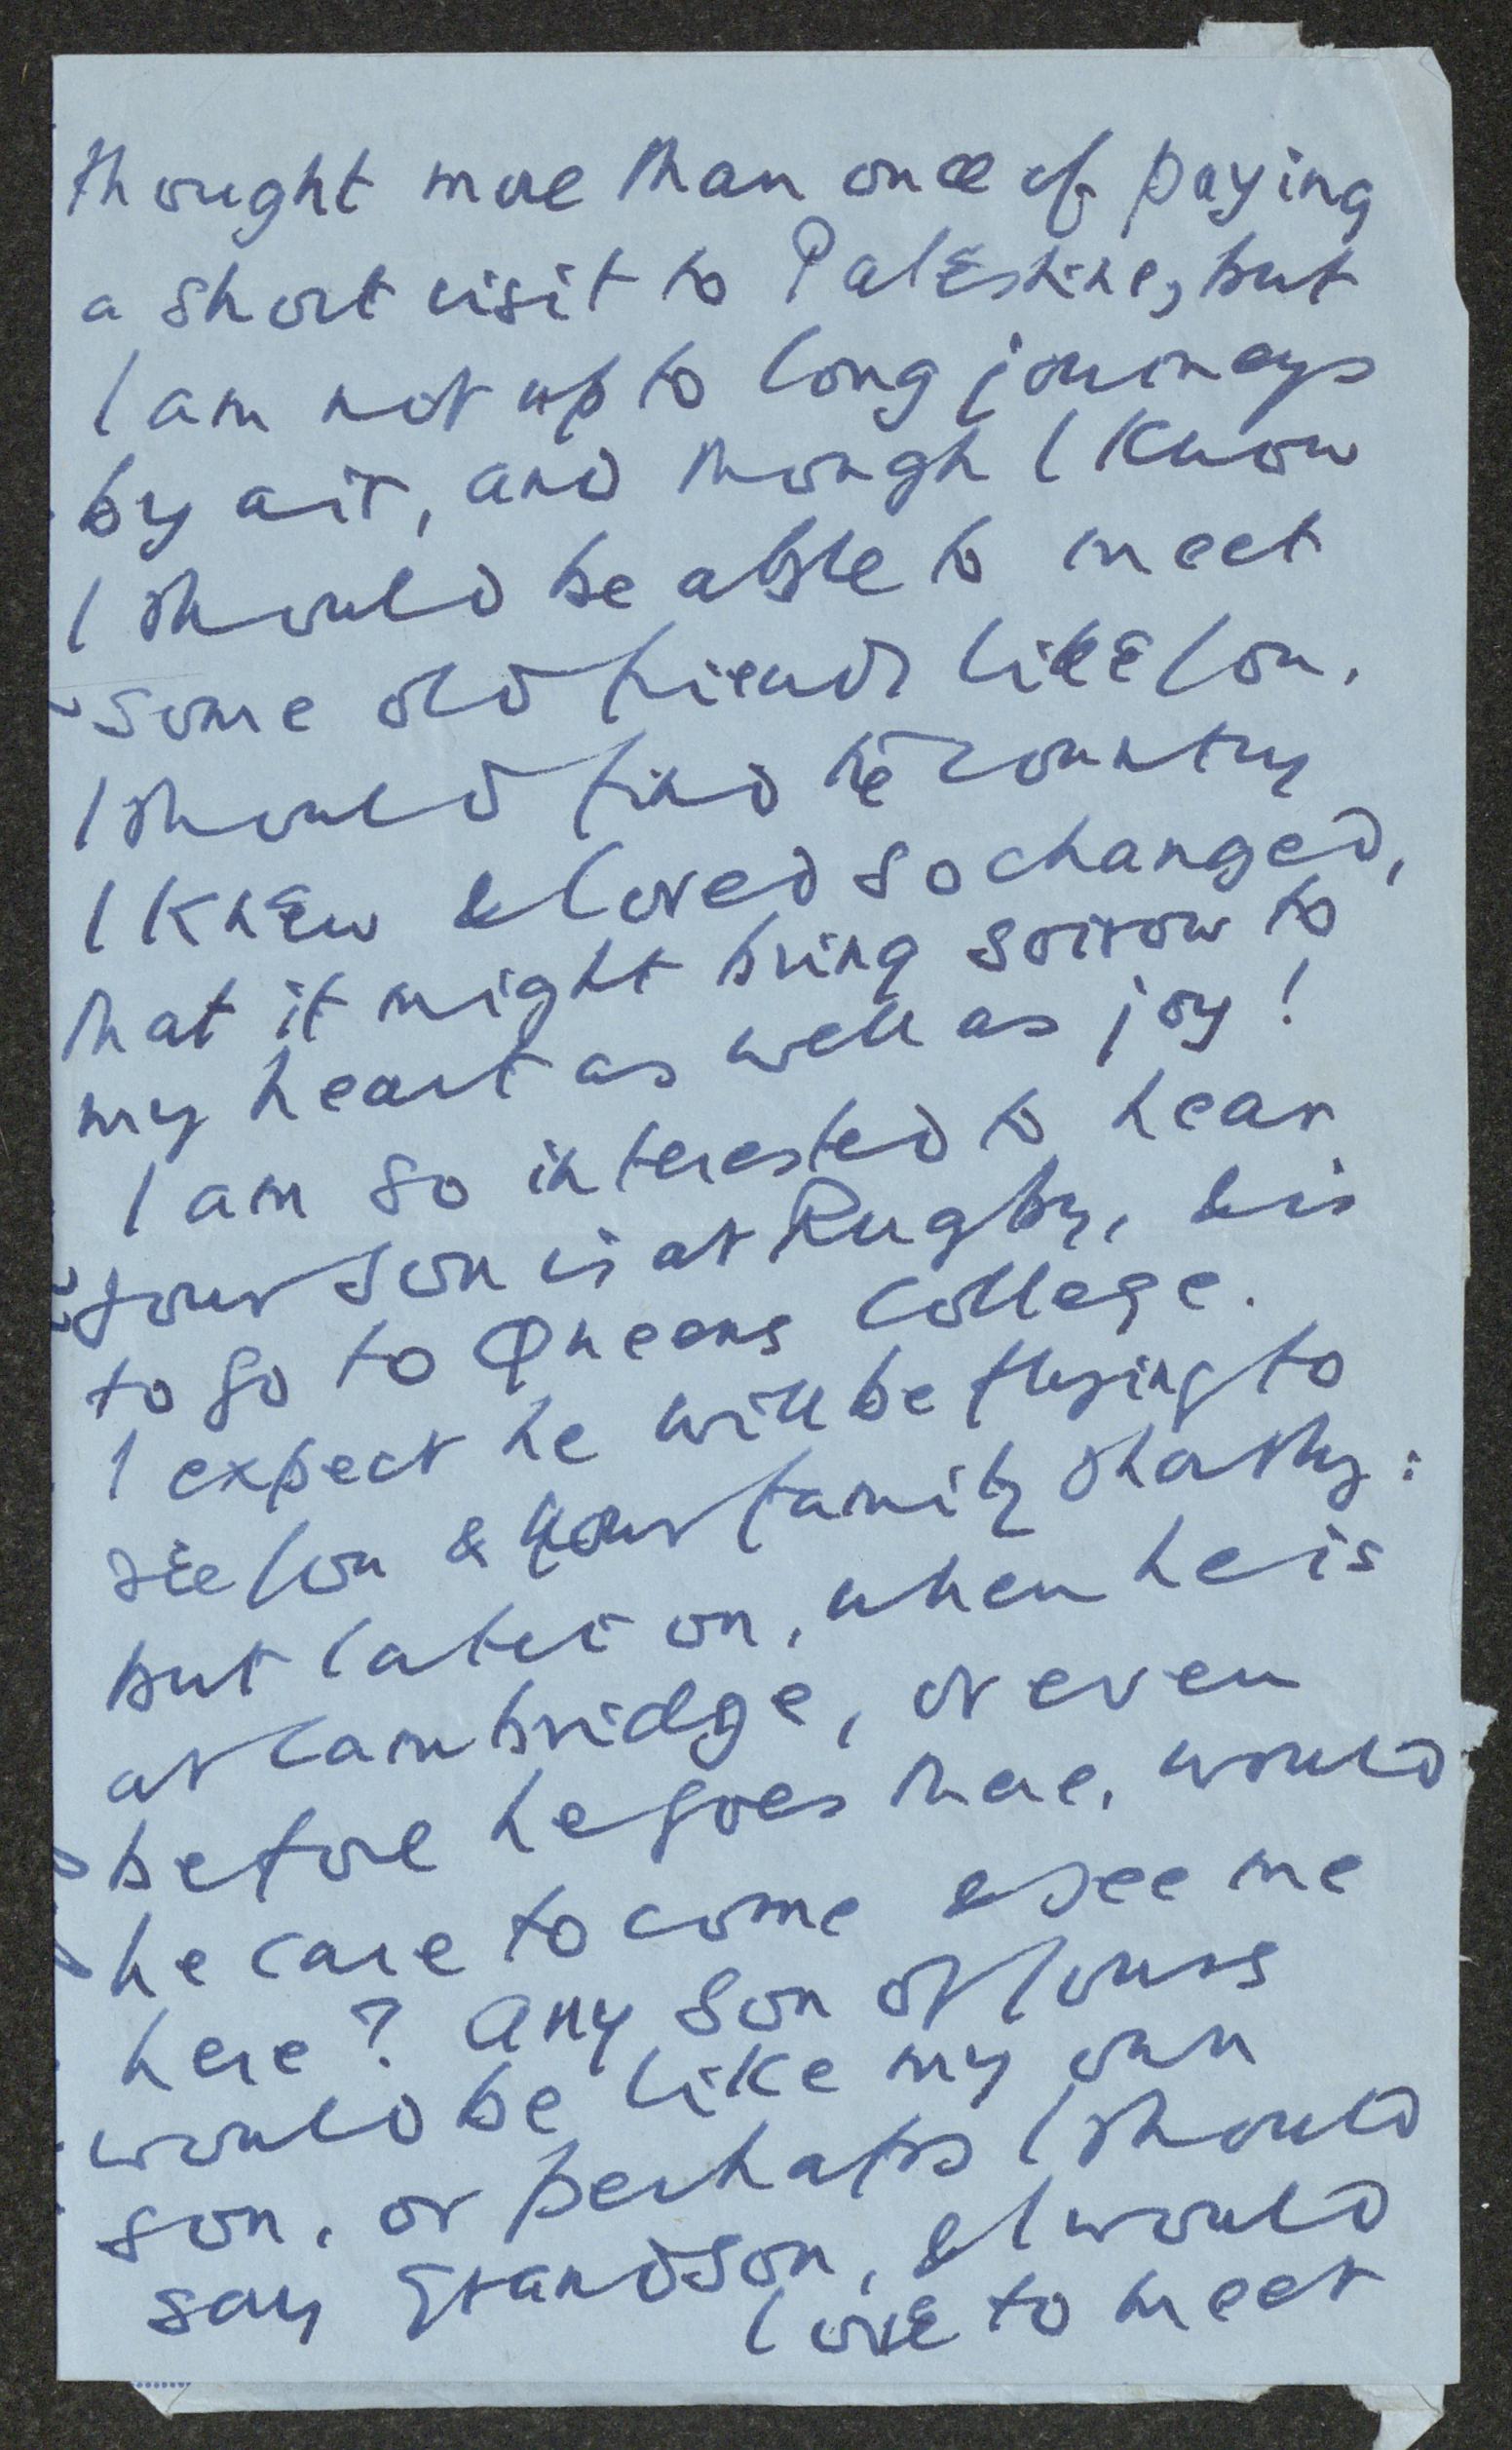 thought more than once of paying
a short visit to Palestine, but
I am not up to long journeys
by air, and though I know
I should be able to meet
some old friends like you.
I should find the country
I knew & loved so changed,
that it might bring sorrow to
my heart as well as joy!
I am so interested to hear
your son is at Rugby, & is
to go to Queens College.
I expect he will be flying to
see you & your family shortly:
but later on, when he is
at Cambridge, or even
before he goes there, would
he care to come & see me
here? Any son of yours
would be like my own
son, or perhaps I should
say Grandson, & I would
love to meet